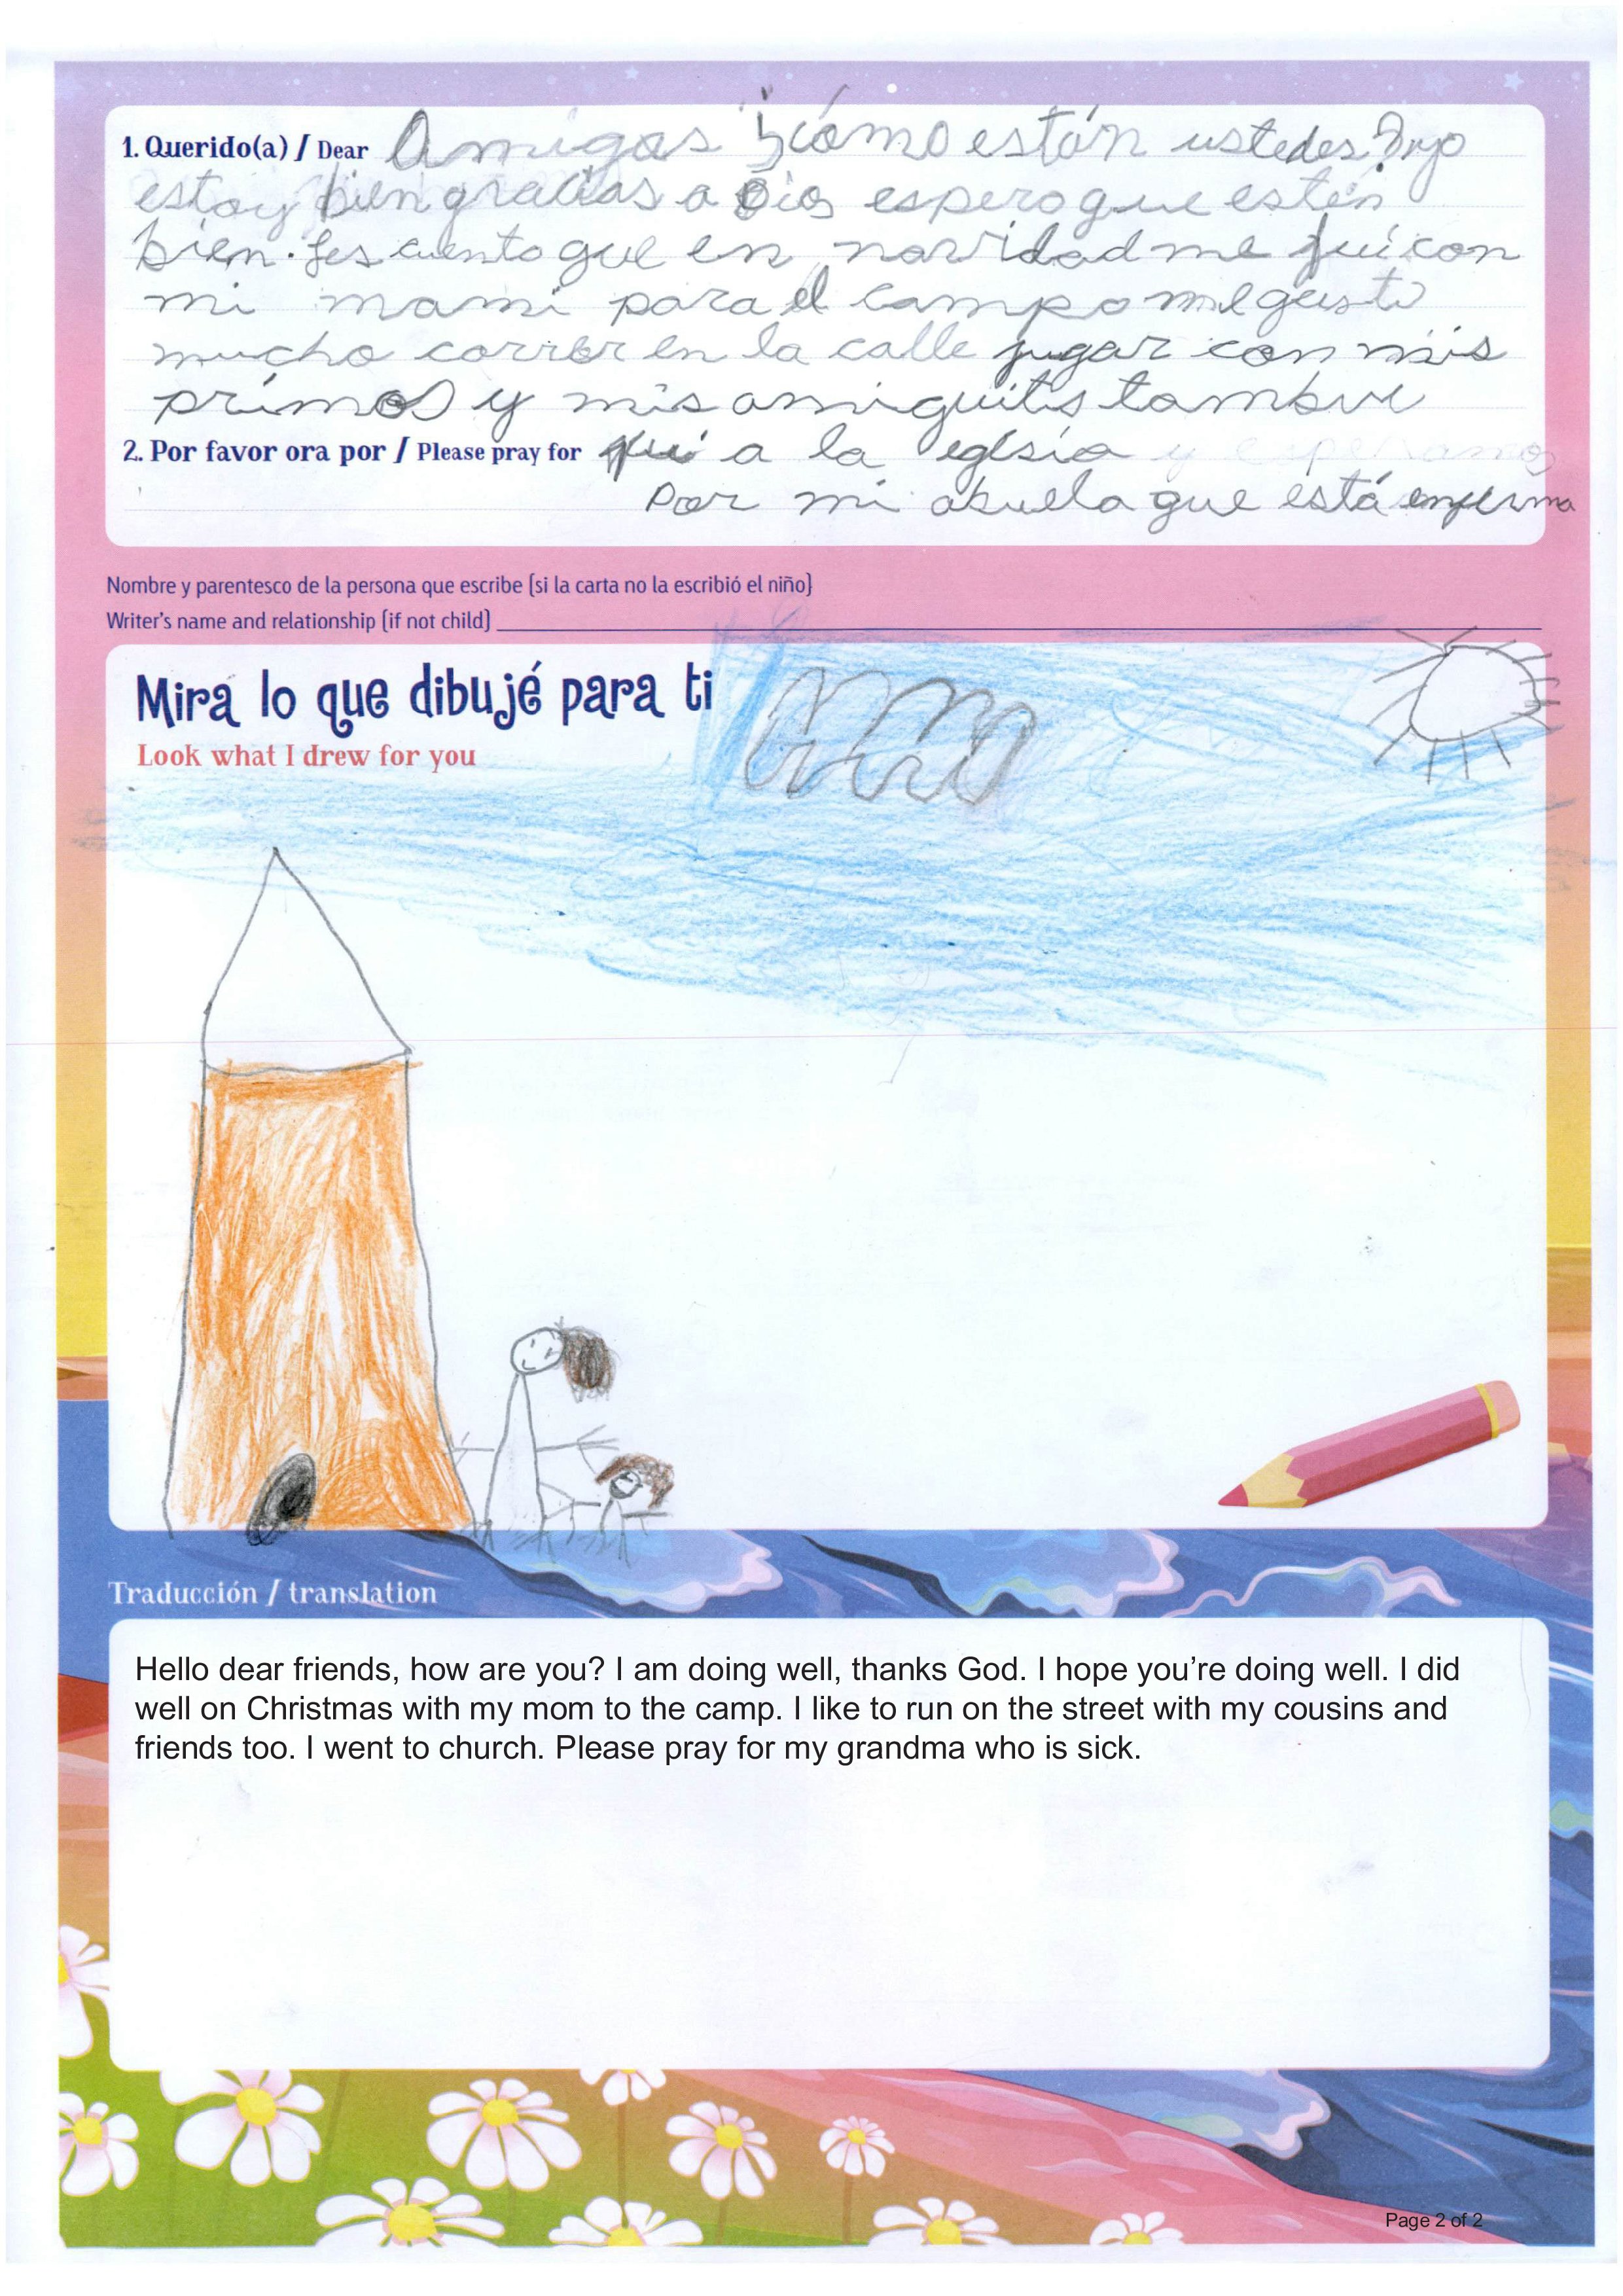 1. Querido(a) / Dear Amigos ¿cómo están ustedes? yo
estoy bien gracias a Dios espero que estén
bien. Les cuento que en navidad me fui con
mi mami para el campo me gusto
mucho correr en la calle jugar con mis
primos y mis amiguitos tambie
2. Por favor ora por / Please pray for fui a la eglsia y
Por mi abuela que está enferma
Nombre y parentesco de la persona que escribe (si la carta no la escribió el niño)
Writer's name and relationship (if not child)
Mira lo que dibujé para ti
Look what I drew for you
Traducción / translation
Hello dear friends, how are you? I am doing well, thanks God. I hope you're doing well. I did
well on Christmas with my mom to the camp. I like to run on the street with my cousins and
friends too. I went to church. Please pray for my grandma who is sick.
Page 2 of 2